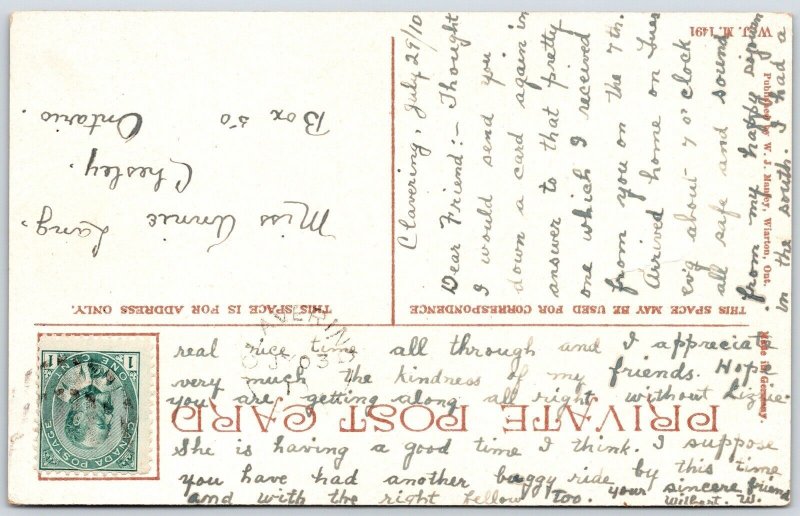 PRIVATE POST CARD
THIS SPACE MAY BE USED FOR CORRESPONDENCE
THIS SPACE IS FOR ADDRESS ONLY.
CANADA POSTAGE
1 ONE CENT 1
W. J. M. 1491
Published by W. J. Manley, Wiarton, Ont.
Made in Germany.
Miss Annie Lang,
Chesley.
Box 50
Ontario.
Clavering, July 29/10
Dear Friend:- Thought
I would send you
down a card again in
answer to that pretty
one which I received
from you on the 7th.
Arrived home on Tues
ev'g about 7 o'clock
all safe and sound
from my happy sojourn
in the south. I had a
real nice time all through and I appreciate
very much the kindness of my friends. Hope
you are getting along all right without Lizzie.
She is having a good time I think. I suppose
you have had another buggy ride by this time
and with the right fellow too. your sincere friend
Wilbert. W.